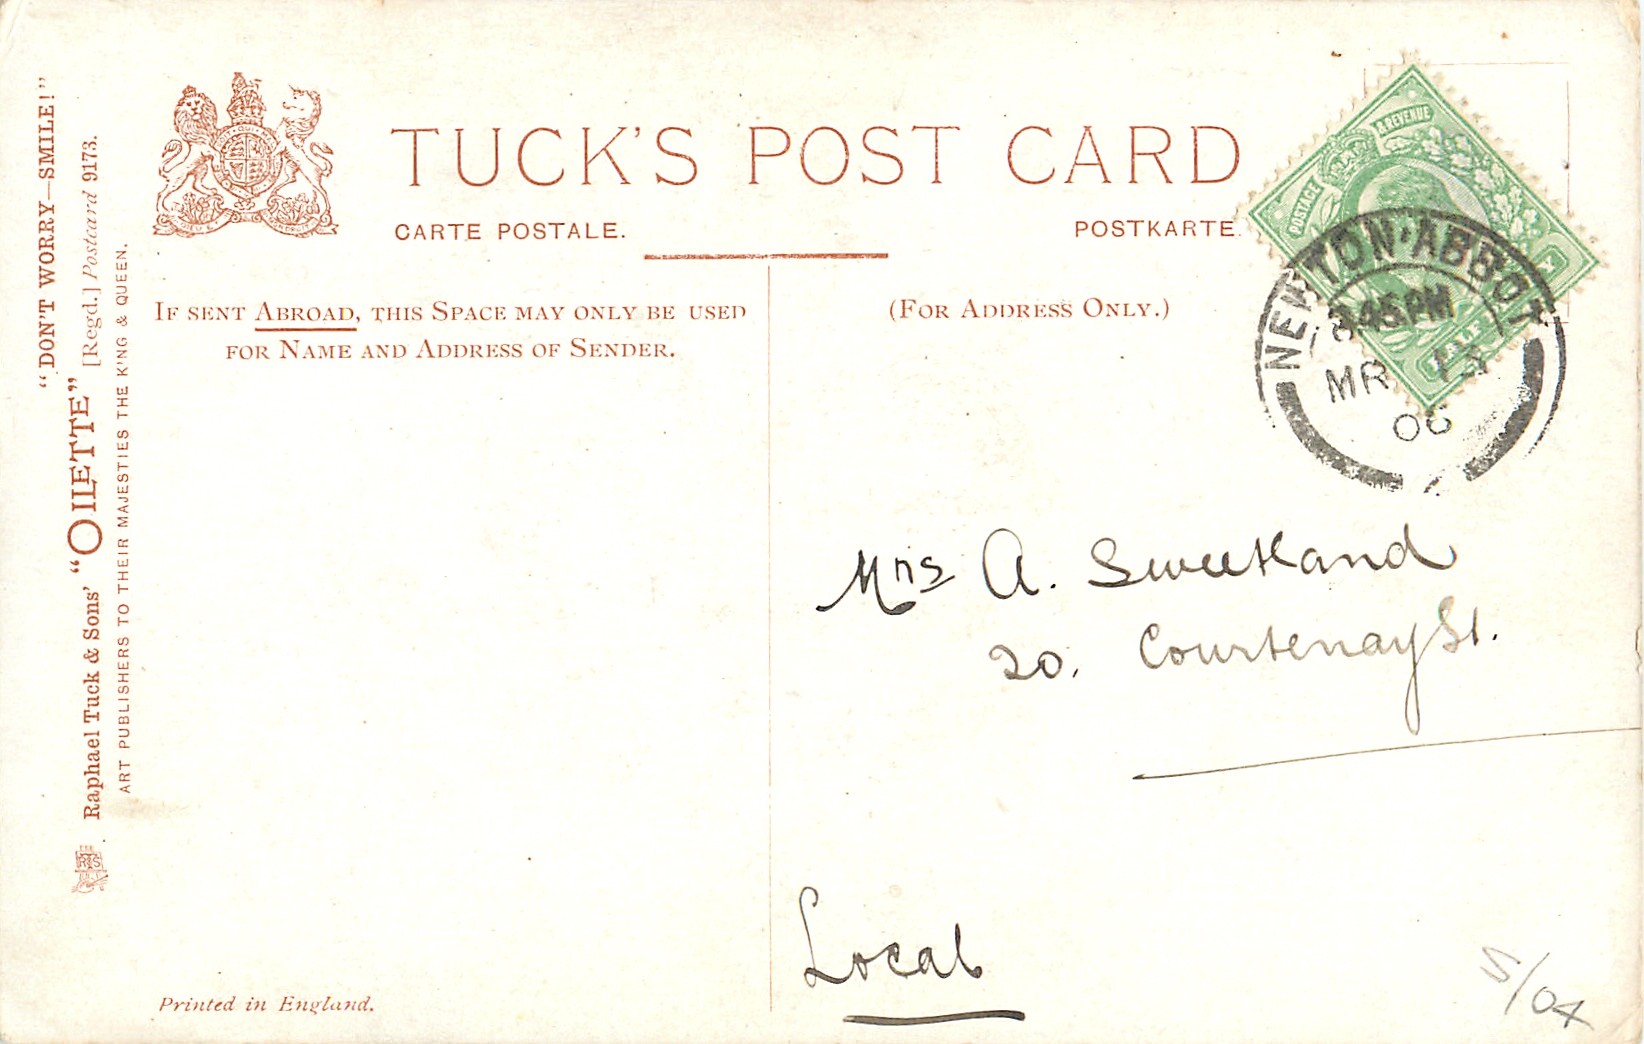 "DON'T WORRY—SMILE!"
Raphael Tuck & Sons' "OILETTE" [Regd.] Postcard 9173.
ART PUBLISHERS TO THEIR MAJESTIES THE KING & QUEEN.
TUCK'S POST CARD
CARTE POSTALE.
POSTKARTE.
IF SENT ABROAD, THIS SPACE MAY ONLY BE USED
FOR NAME AND ADDRESS OF SENDER.
(FOR ADDRESS ONLY.)
POSTAGE & REVENUE
HALF
NEWTON·ABBOT
8.45PM
MR 13
06
Mrs A. Sweetland
20. Courtenay St.
Local
Printed in England.
5/04